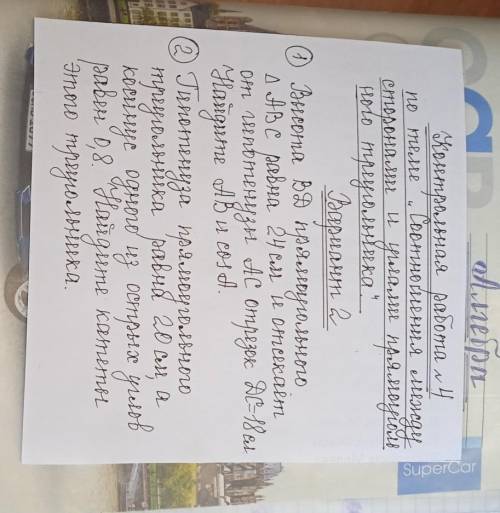 Контрольная работа №4
по теме „Соотношения между
сторонами и углами прямоуголь
ного треугольника."
Вариант 2
① Высота ВД прямоугольного
Δ АВС равна 24 см и отсекает
от гипотенузы АС отрезок ДС=18 см
Найдите АВ и cos A.
② Гипотенуза прямоугольного
треугольника равна 20 см, а
косинус одного из острых углов
равен 0,8. Найдите катеты
этого треугольника.
Алгебра
SuperCar